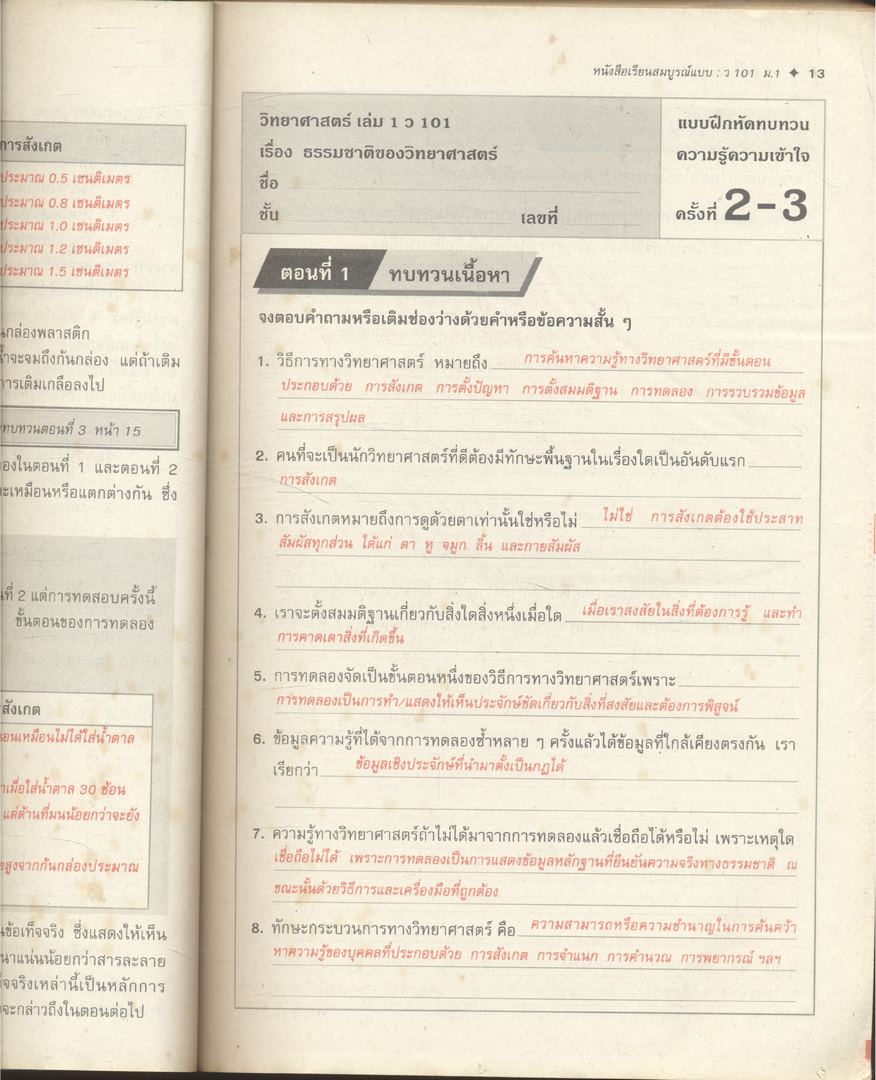 หนังสือเรียนสมบูรณ์แบบ : ว 101 ม.1 ✦ 13
การสังเกต
ประมาณ 0.5 เซนติเมตร
ประมาณ 0.8 เซนติเมตร
ประมาณ 1.0 เซนติเมตร
ประมาณ 1.2 เซนติเมตร
ประมาณ 1.5 เซนติเมตร
นกล่องพลาสติก
น้ำจะจมถึงก้นกล่อง แต่ถ้าเติม
การเติมเกลือลงไป
ทบทวนตอนที่ 3 หน้า 15
องในตอนที่ 1 และตอนที่ 2
ะเหมือนหรือแตกต่างกัน ซึ่ง
นที่ 2 แต่การทดสอบครั้งนี้
ขั้นตอนของการทดลอง
สังเกต
อนเหมือนไม่ได้ใส่น้ำตาล
าเมื่อใส่น้ำตาล 30 ช้อน
แต่ด้านที่มนน้อยกว่าจะยัง
ยสูงจากก้นกล่องประมาณ
นข้อเท็จจริง ซึ่งแสดงให้เห็น
นาแน่นน้อยกว่าสารละลาย
จจริงเหล่านี้เป็นหลักการ
จะกล่าวถึงในตอนต่อไป
วิทยาศาสตร์ เล่ม 1 ว 101
เรื่อง ธรรมชาติของวิทยาศาสตร์
ชื่อ
ชั้น เลขที่
แบบฝึกหัดทบทวน
ความรู้ความเข้าใจ
ครั้งที่ 2-3
ตอนที่ 1 ทบทวนเนื้อหา
จงตอบคำถามหรือเติมช่องว่างด้วยคำหรือข้อความสั้น ๆ
1. วิธีการทางวิทยาศาสตร์ หมายถึง การค้นหาความรู้ทางวิทยาศาสตร์ที่มีขั้นตอน
ประกอบด้วย การสังเกต การตั้งปัญหา การตั้งสมมติฐาน การทดลอง การรวบรวมข้อมูล
และการสรุปผล
2. คนที่จะเป็นนักวิทยาศาสตร์ที่ดีต้องมีทักษะพื้นฐานในเรื่องใดเป็นอันดับแรก
การสังเกต
3. การสังเกตหมายถึงการดูด้วยตาเท่านั้นใช่หรือไม่ ไม่ใช่ การสังเกตต้องใช้ประสาท
สัมผัสทุกส่วน ได้แก่ ตา หู จมูก ลิ้น และกายสัมผัส
4. เราจะตั้งสมมติฐานเกี่ยวกับสิ่งใดสิ่งหนึ่งเมื่อใด เมื่อเราสงสัยในสิ่งที่ต้องการรู้ และทำ
การคาดเดาสิ่งที่เกิดขึ้น
5. การทดลองจัดเป็นขั้นตอนหนึ่งของวิธีการทางวิทยาศาสตร์เพราะ
การทดลองเป็นการทำ/แสดงให้เห็นประจักษ์ชัดเกี่ยวกับสิ่งที่สงสัยและต้องการพิสูจน์
6. ข้อมูลความรู้ที่ได้จากการทดลองซ้ำหลาย ๆ ครั้งแล้วได้ข้อมูลที่ใกล้เคียงตรงกัน เรา
เรียกว่า ข้อมูลเชิงประจักษ์ที่นำมาตั้งเป็นกฎได้
7. ความรู้ทางวิทยาศาสตร์ถ้าไม่ได้มาจากการทดลองแล้วเชื่อถือได้หรือไม่ เพราะเหตุใด
เชื่อถือไม่ได้ เพราะการทดลองเป็นการแสดงข้อมูลหลักฐานที่ยืนยันความจริงทางธรรมชาติ ณ
ขณะนั้นด้วยวิธีการและเครื่องมือที่ถูกต้อง
8. ทักษะกระบวนการทางวิทยาศาสตร์ คือ ความสามารถหรือความชำนาญในการค้นคว้า
หาความรู้ของบุคคลที่ประกอบด้วย การสังเกต การจำแนก การคำนวณ การพยากรณ์ ฯลฯ